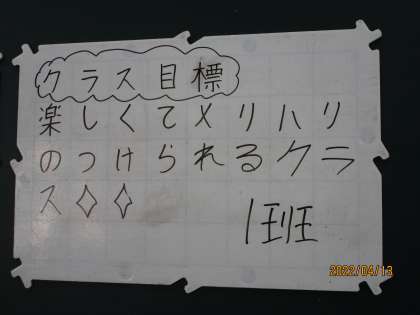 クラス目標
楽しくてメリハリ
のつけられるクラ
ス◇◇
1班
2022/04/13